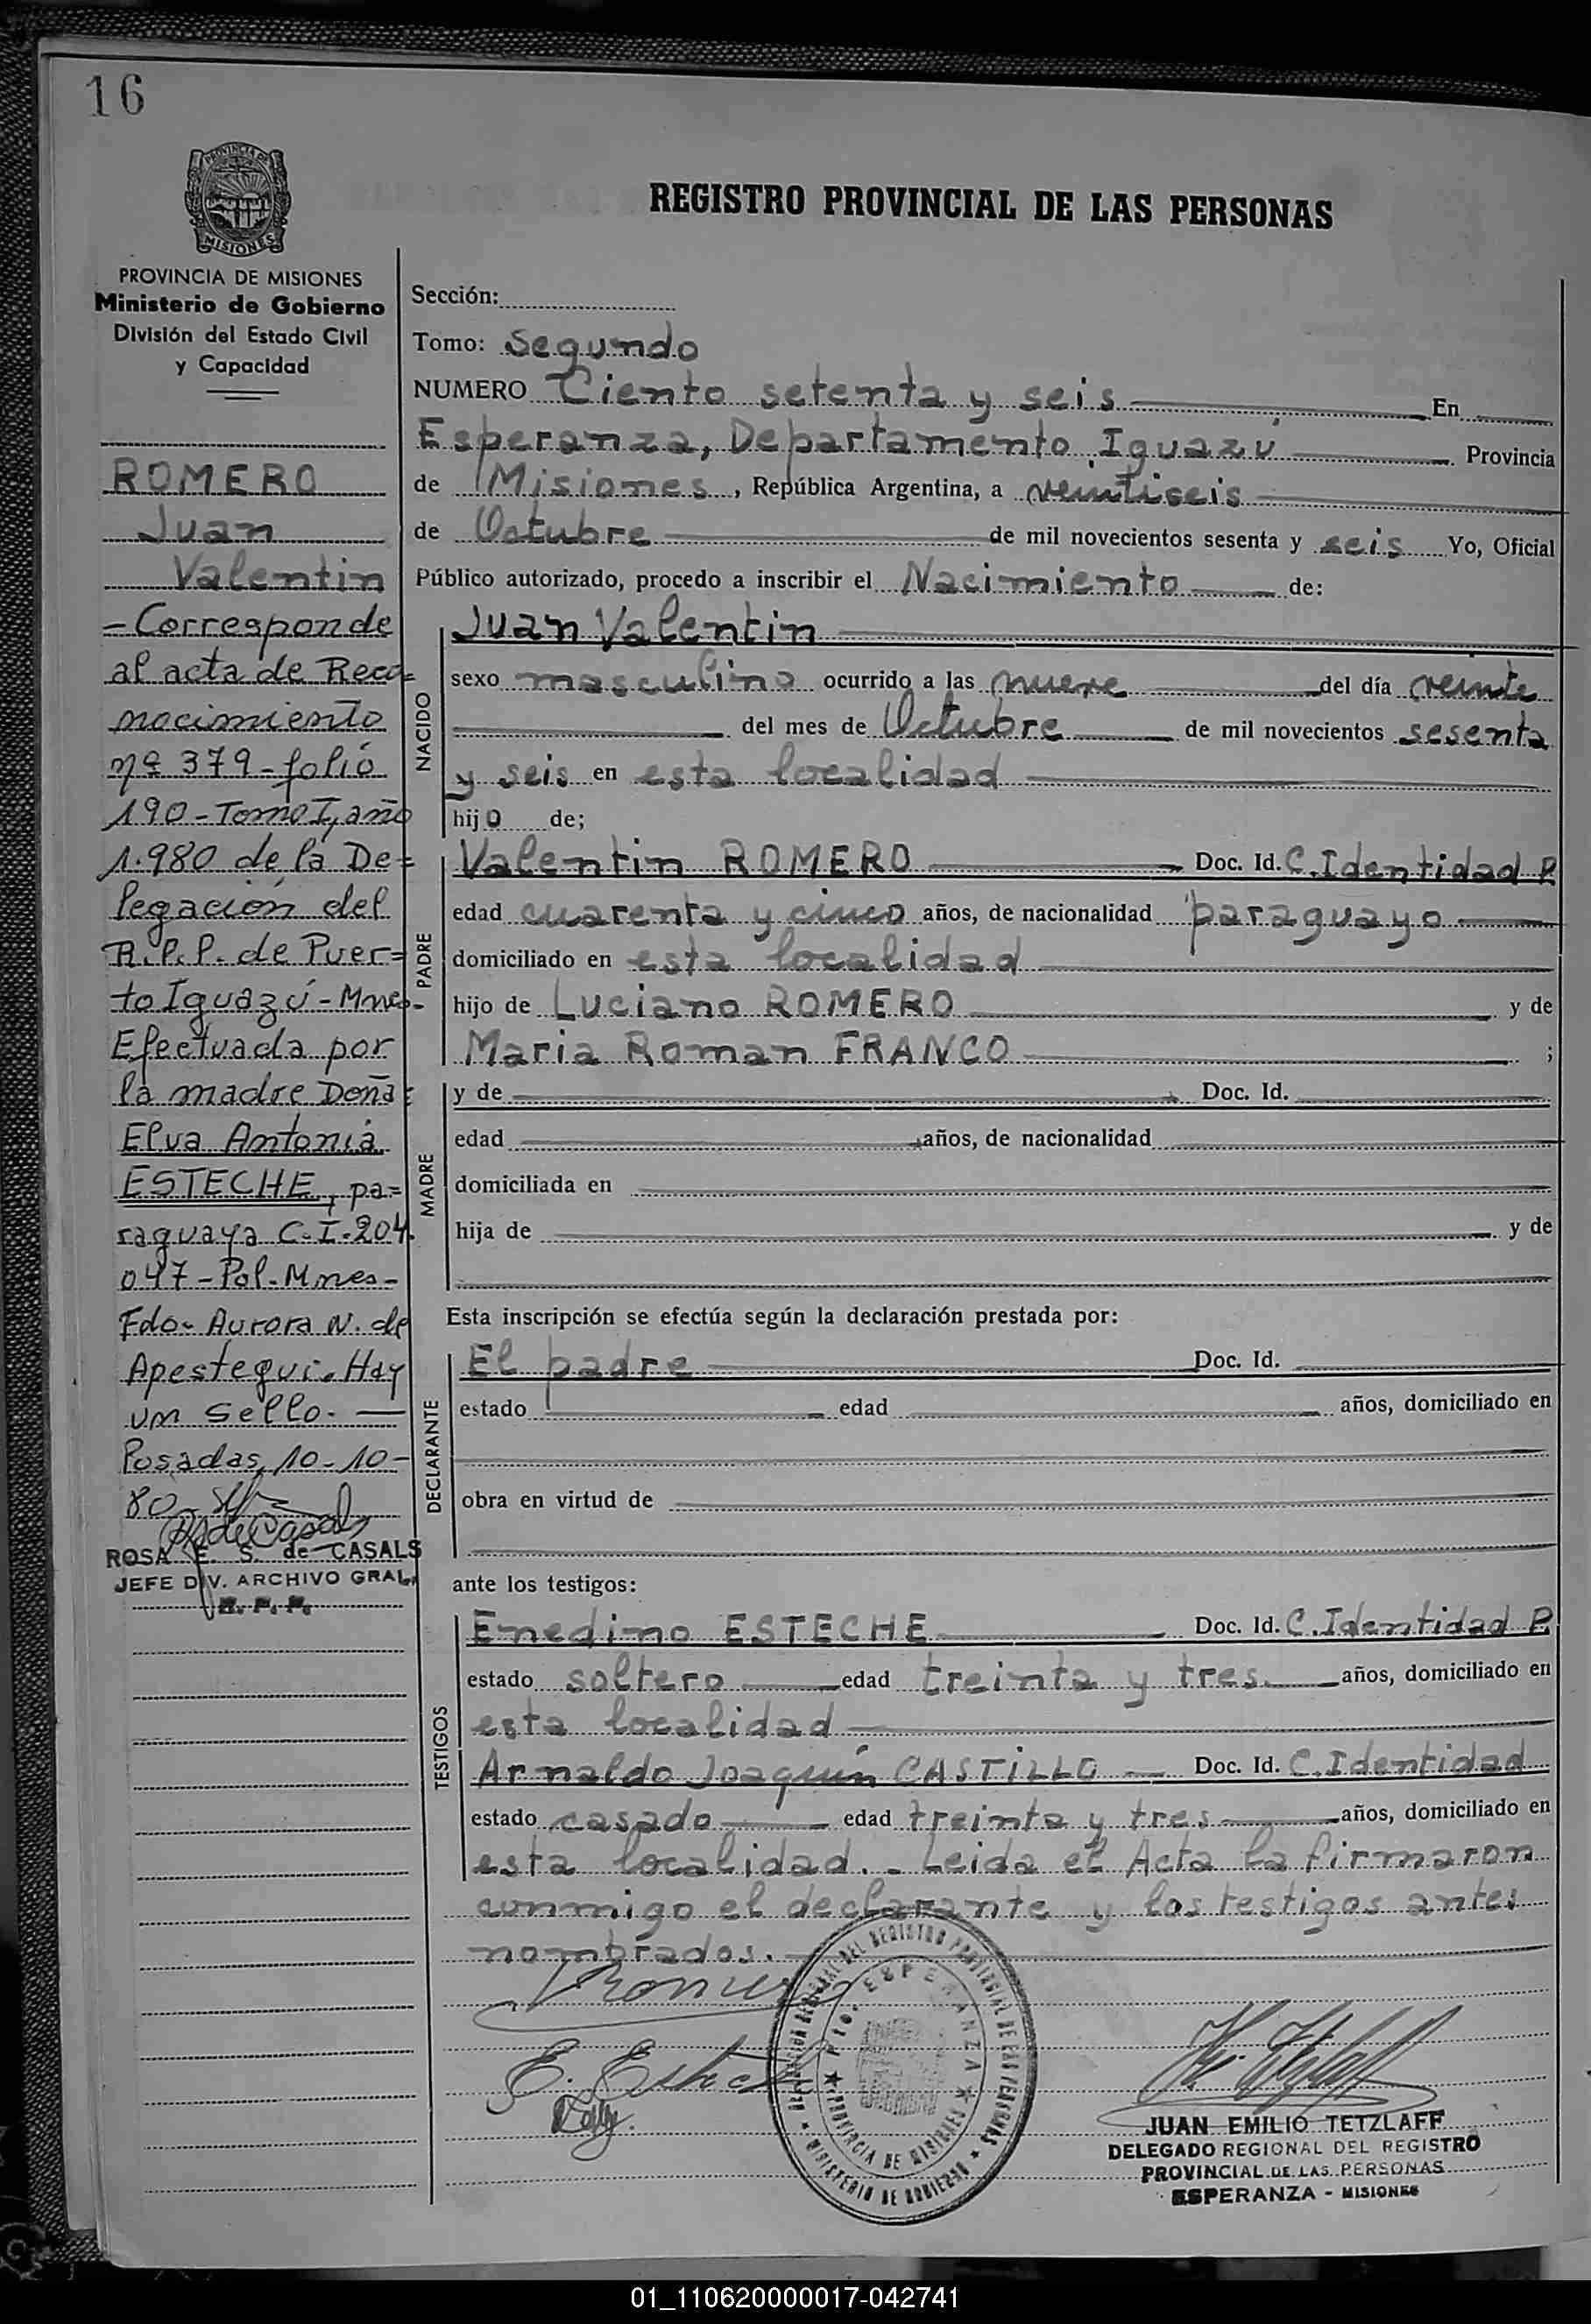 16
PROVINCIA DE
MISIONES
PROVINCIA DE MISIONES
Ministerio de Gobierno
División del Estado Civil
y Capacidad
ROMERO
Juan
Valentin
- Corresponde
al acta de Reco=
nocimiento
nº 379 - folio
190 - Tomo I, año
1.980 de la De=
legación del
R.P.P. de Puer=
to Iguazú - Mnes -
Efectuada por
la madre Doña
Elva Antonia
ESTECHE, pa=
raguaya C.I. 204.
047 - Pol. Mnes -
Fdo - Aurora N. de
Apestegui. Hay
un sello. —
Posadas, 10-10-
80 -
ROSA E. S. de CASALS
JEFE DIV. ARCHIVO GRAL.
R. P. P.
REGISTRO PROVINCIAL DE LAS PERSONAS
Sección:
Tomo: Segundo
NUMERO Ciento setenta y seis En
Esperanza, Departamento Iguazú Provincia
de Misiones, República Argentina, a veintiseis
de Octubre de mil novecientos sesenta y seis Yo, Oficial
Público autorizado, procedo a inscribir el Nacimiento de:
NACIDO
Juan Valentin
sexo masculino ocurrido a las nueve del día veinte
del mes de Octubre de mil novecientos sesenta
y seis en esta localidad
hijo de;
PADRE
Valentin ROMERO Doc. Id. C. Identidad P.
edad cuarenta y cinco años, de nacionalidad paraguayo
domiciliado en esta localidad
hijo de Luciano ROMERO y de
Maria Roman FRANCO ;
MADRE
y de Doc. Id.
edad años, de nacionalidad
domiciliada en
hija de y de
Esta inscripción se efectúa según la declaración prestada por:
DECLARANTE
El padre Doc. Id.
estado edad años, domiciliado en
obra en virtud de
ante los testigos:
TESTIGOS
Enedino ESTECHE Doc. Id. C. Identidad P.
estado soltero edad treinta y tres años, domiciliado en
esta localidad
Arnaldo Joaquín CASTILLO Doc. Id. C. Identidad
estado casado edad treinta y tres años, domiciliado en
esta localidad. - Leida el Acta la firmaron
conmigo el declarante y los testigos antes
nombrados.
E. Esteche
DELEGACION REGIONAL DEL REGISTRO PROVINCIAL DE LAS PERSONAS
Pto. ESPERANZA
PROVINCIA DE MISIONES
MINISTERIO DE GOBIERNO
JUAN EMILIO TETZLAFF
DELEGADO REGIONAL DEL REGISTRO
PROVINCIAL DE LAS PERSONAS
ESPERANZA - MISIONES
01_110620000017-042741